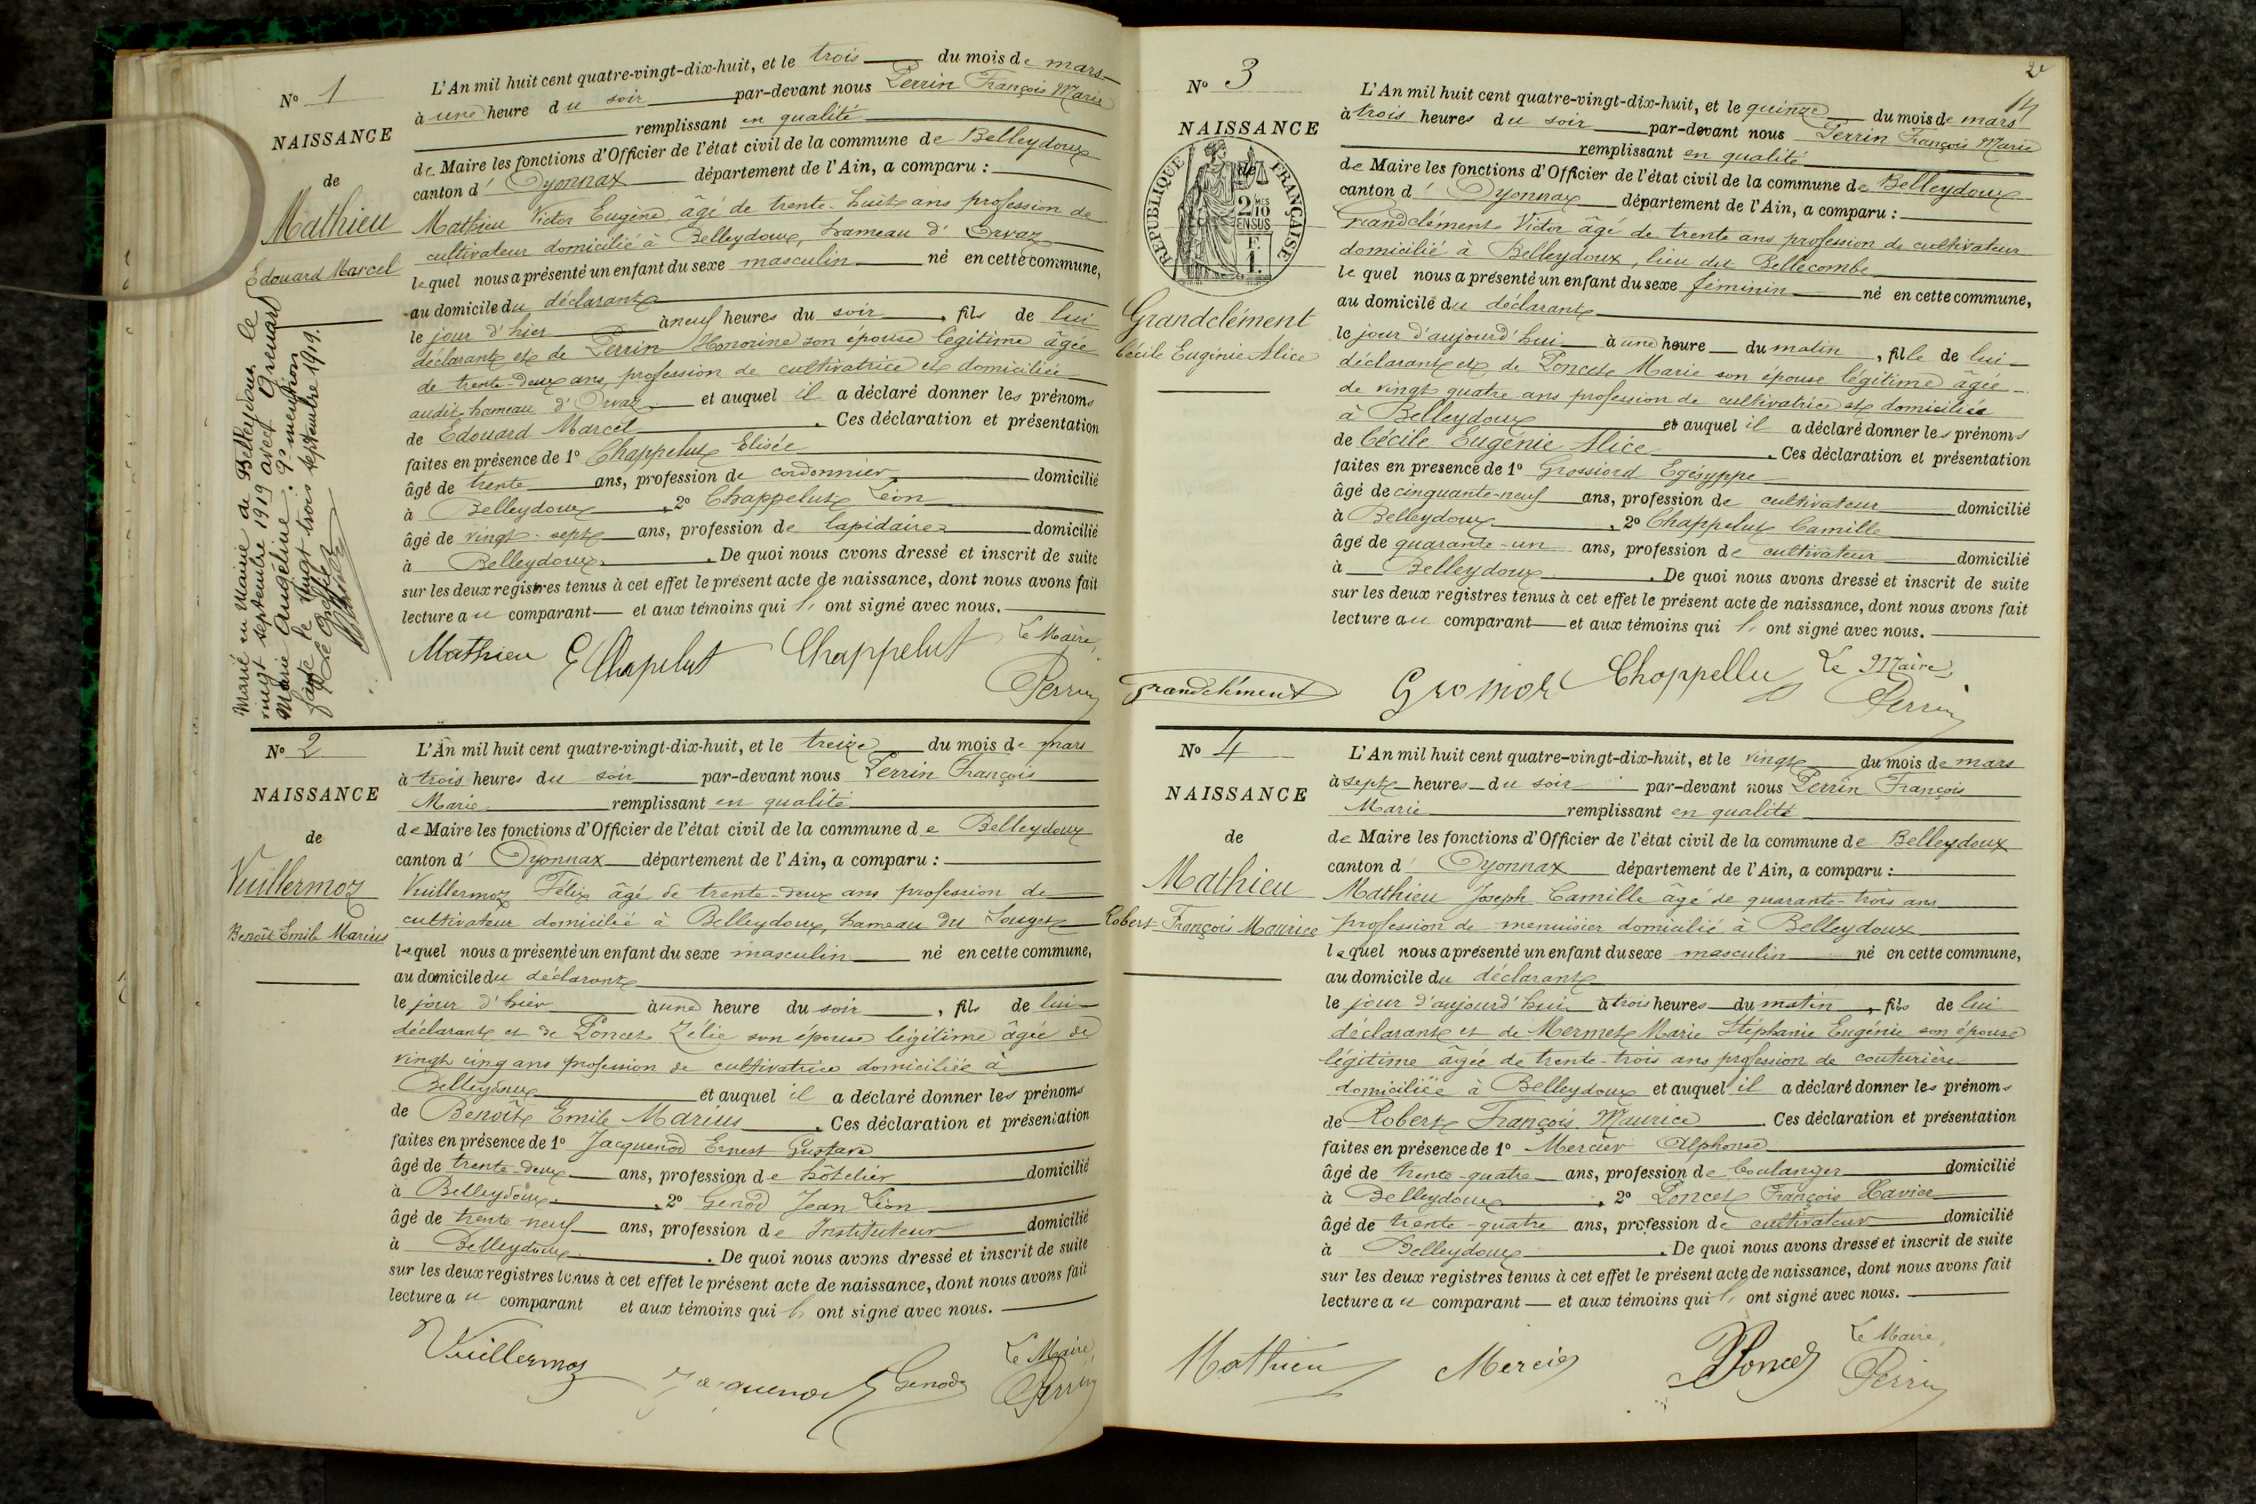 N° 1
NAISSANCE
de
Mathieu
Edouard Marcel
Marié en Mairie de Belleydoux le
vingt septembre 1919 avec
Marie Angéline. Pr mention
faite le vingt trois septembre 1919.
Le Greffier
L'An mil huit cent quatre-vingt-dix-huit, et le trois du mois de mars
à une heure du soir par-devant nous Perrin François Marie
remplissant en qualité
de Maire les fonctions d'Officier de l'état civil de la commune de Belleydoux
canton d' Oyonnax département de l'Ain, a comparu :
Mathieu Victor Eugène âgé de trente-huit ans profession de
cultivateur domicilié à Belleydoux, hameau d' Orvaz
lequel nous a présenté un enfant du sexe masculin né en cette commune,
au domicile du déclarant
le jour d'hier à neuf heures du soir, fils de lui
déclarant et de Perrin Honorine son épouse légitime âgée
de trente-deux ans, profession de cultivatrice et domiciliée
audit hameau d' Orvaz et auquel il a déclaré donner les prénoms
de Edouard Marcel. Ces déclaration et présentation
faites en présence de 1° Chappelut Elisée
âgé de trente ans, profession de cordonnier domicilié
à Belleydoux, 2° Chappelut Léon
âgé de vingt-sept ans, profession de lapidaire domicilié
à Belleydoux. De quoi nous avons dressé et inscrit de suite
sur les deux registres tenus à cet effet le présent acte de naissance, dont nous avons fait
lecture au comparant et aux témoins qui l' ont signé avec nous.
Mathieu E Chapelut Chappelut Le Maire,
Perrin
N° 2
NAISSANCE
de
Vuillermoz
Benoît Emile Marius
L'An mil huit cent quatre-vingt-dix-huit, et le treize du mois de mars
à trois heures du soir par-devant nous Perrin François
Marie remplissant en qualité
de Maire les fonctions d'Officier de l'état civil de la commune de Belleydoux
canton d' Oyonnax département de l'Ain, a comparu :
Vuillermoz Félix âgé de trente-deux ans profession de
cultivateur domicilié à Belleydoux, hameau du
lequel nous a présenté un enfant du sexe masculin né en cette commune,
au domicile du déclarant
le jour d'hier à une heure du soir, fils de lui
déclarant et de Poncet Zélie son épouse légitime âgée de
vingt cinq ans profession de cultivatrice domiciliée à
Belleydoux et auquel il a déclaré donner les prénoms
de Benoît Emile Marius. Ces déclaration et présentation
faites en présence de 1° Jacquenod Ernest Gustave
âgé de trente-deux ans, profession de hôtelier domicilié
à Belleydoux, 2° Genod Jean Léon
âgé de trente neuf ans, profession de Instituteur domicilié
à Belleydoux. De quoi nous avons dressé et inscrit de suite
sur les deux registres tenus à cet effet le présent acte de naissance, dont nous avons fait
lecture au comparant et aux témoins qui l' ont signé avec nous.
Vuillermoz Jacquenod Genod Le Maire,
Perrin
2e
14
N° 3
NAISSANCE
de
REPUBLIQUE FRANÇAISE
2 MES 10
EN SUS
F.
1.
Grandclément
Cécile Eugénie Alice
L'An mil huit cent quatre-vingt-dix-huit, et le quinze du mois de mars
à trois heures du soir par-devant nous Perrin François Marie
remplissant en qualité
de Maire les fonctions d'Officier de l'état civil de la commune de Belleydoux
canton d' Oyonnax département de l'Ain, a comparu :
Grandclément Victor âgé de trente ans profession de cultivateur
domicilié à Belleydoux, lieu dit Bellecombe
lequel nous a présenté un enfant du sexe féminin né en cette commune,
au domicile du déclarant
le jour d'aujourd'hui à une heure du matin, fille de lui
déclarant et de Poncet Marie son épouse légitime âgée
de vingt quatre ans profession de cultivatrice et domiciliée
à Belleydoux et auquel il a déclaré donner les prénoms
de Cécile Eugénie Alice. Ces déclaration et présentation
faites en présence de 1° Grossiord Egésyppe
âgé de cinquante-neuf ans, profession de cultivateur domicilié
à Belleydoux, 2° Chappelut Camille
âgé de quarante-un ans, profession de cultivateur domicilié
à Belleydoux. De quoi nous avons dressé et inscrit de suite
sur les deux registres tenus à cet effet le présent acte de naissance, dont nous avons fait
lecture au comparant et aux témoins qui l' ont signé avec nous.
Grandclément Chappellu Le Maire,
Perrin
N° 4
NAISSANCE
de
Mathieu
Robert François Maurice
L'An mil huit cent quatre-vingt-dix-huit, et le vingt du mois de mars
à sept heures du soir par-devant nous Perrin François
Marie remplissant en qualité
de Maire les fonctions d'Officier de l'état civil de la commune de Belleydoux
canton d' Oyonnax département de l'Ain, a comparu :
Mathieu Joseph Camille âgé de quarante-trois ans
profession de menuisier domicilié à Belleydoux
lequel nous a présenté un enfant du sexe masculin né en cette commune,
au domicile du déclarant
le jour d'aujourd'hui à trois heures du matin, fils de lui
déclarant et de Mermet Marie Stéphanie Eugénie son épouse
légitime âgée de trente-trois ans profession de couturière
domiciliée à Belleydoux et auquel il a déclaré donner les prénoms
de Robert François Maurice. Ces déclaration et présentation
faites en présence de 1° Mercier Alphonse
âgé de trente-quatre ans, profession de boulanger domicilié
à Belleydoux, 2° Poncet François Xavier
âgé de trente-quatre ans, profession de cultivateur domicilié
à Belleydoux. De quoi nous avons dressé et inscrit de suite
sur les deux registres tenus à cet effet le présent acte de naissance, dont nous avons fait
lecture au comparant et aux témoins qui l' ont signé avec nous.
Mathieu Mercier Poncet Le Maire,
Perrin